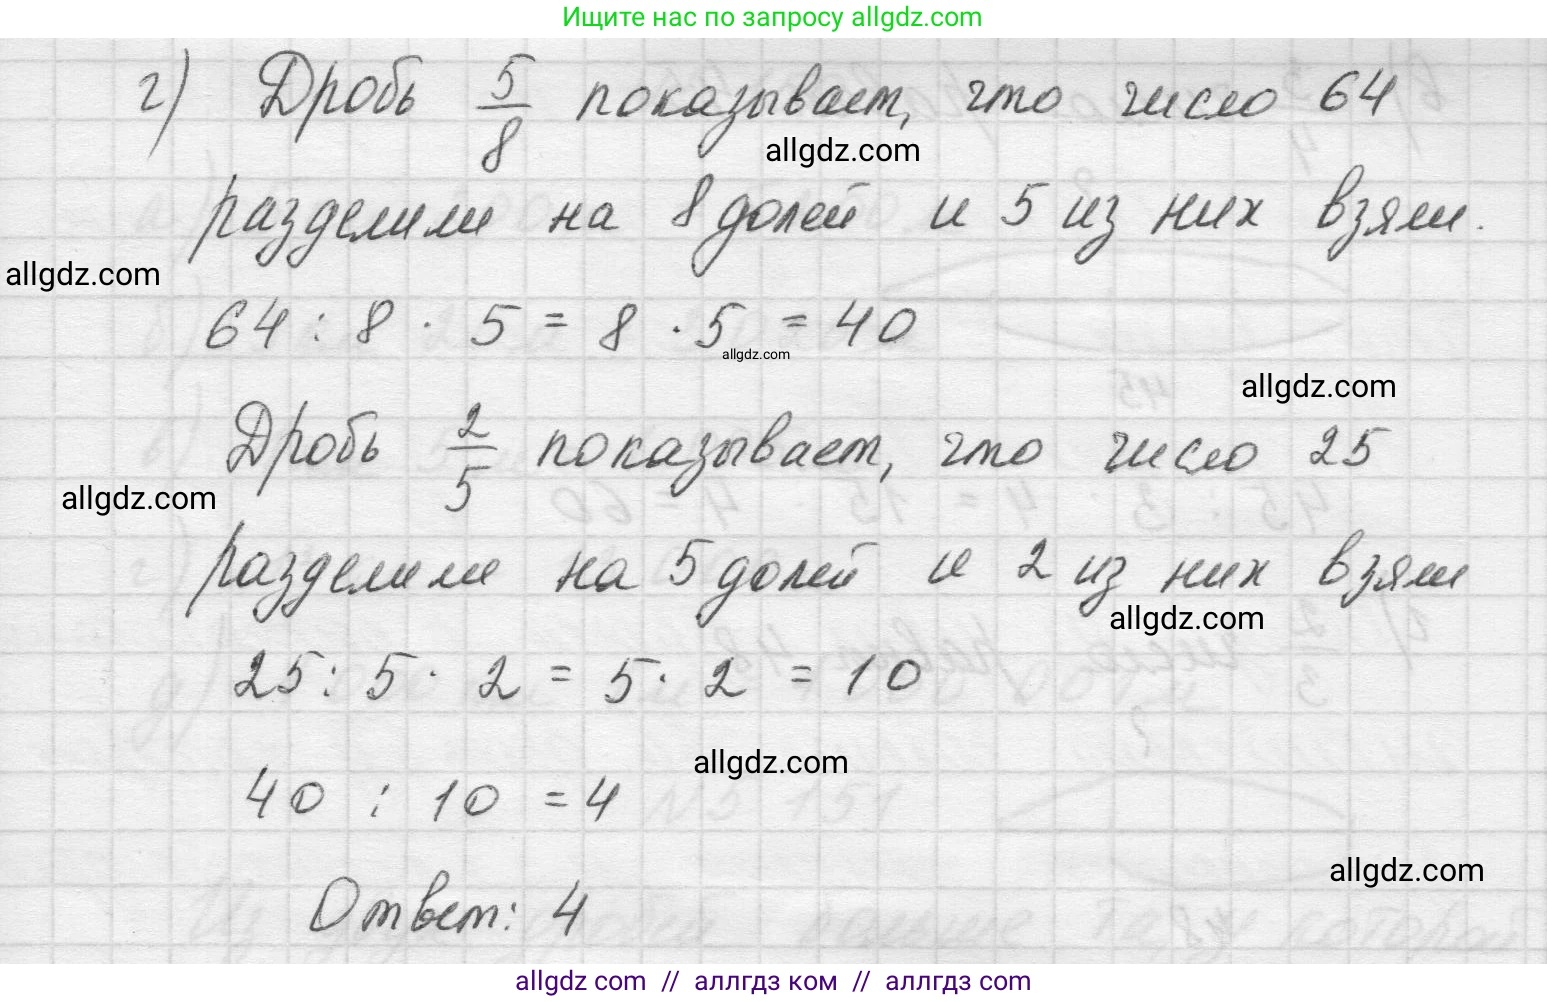 Ищите нас по запросу allgdz.com
г) Дробь 5/8 показывает, что число 64
allgdz.com
разделили на 8 долей и 5 из них взяли.
allgdz.com
64 : 8 · 5 = 8 · 5 = 40
allgdz.com
allgdz.com
Дробь 2/5 показывает, что число 25
allgdz.com
разделили на 5 долей и 2 из них взяли
allgdz.com
25 : 5 · 2 = 5 · 2 = 10
allgdz.com
40 : 10 = 4
allgdz.com
Ответ: 4
allgdz com // аллгдз ком // аллгдз com